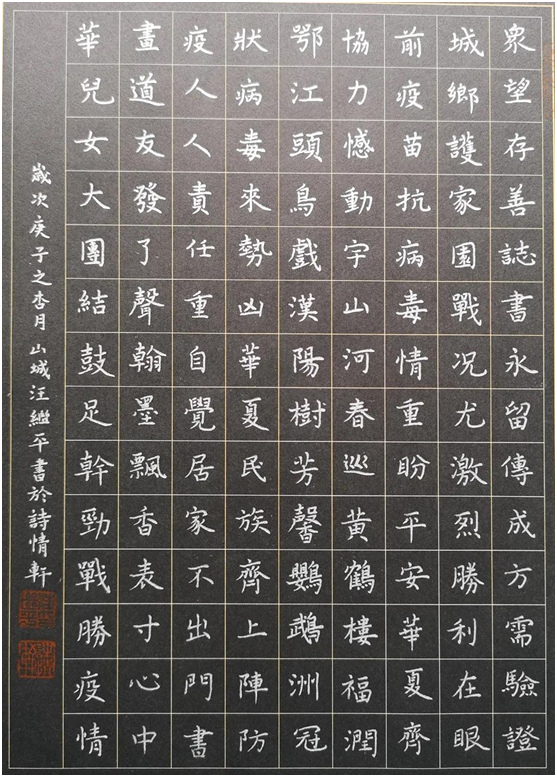 衆望存善誌書永留傳成方需驗證
城鄉護家園戰况尤激烈勝利在眼
前疫苗抗病毒情重盼平安華夏齊
協力憾動宇山河春巡黃鶴樓福潤
鄂江頭鳥戲漢陽樹芳馨鸚鵡洲冠
狀病毒來勢凶華夏民族齊上陣防
疫人人責任重自覺居家不出門書
畫道友發了聲翰墨飄香表寸心中
華兒女大團結鼓足幹勁戰勝疫情
歲次庚子之杏月山城汪繼平書於詩情軒